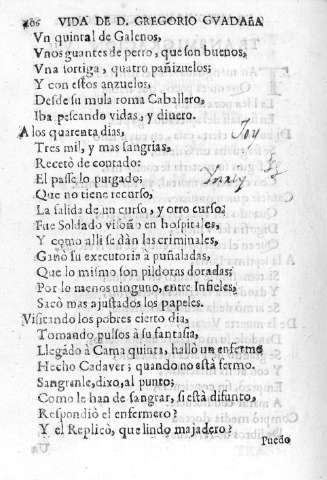 406 VIDA DE D. GREGORIO GVADAñA
Vn quintal de Galenos,
Vnos guantes de perro, que son buenos,
Vna sortija, quatro pañizuelos;
Y con estos anzuelos,
Desde su mula roma Caballero,
Iba pescando vidas, y dinero.
A los quarenta dias,
Tres mil, y mas sangrias,
Recetò de contado:
El passe lo purgado;
Que no tiene recurso,
La salida de un curso, y otro curso:
Fue Soldado visoño en hospitales,
Y como alli se dàn las criminales,
Ganò su executoria à puñaladas,
Que lo mismo son pildoras doradas;
Por lo menos ninguno, entre Infieles,
Sacò mas ajustados los papeles.
Visitando los pobres cierto dia,
Tomando pulsos à su fantasia,
Llegado à Cama quinta, hallò un enfermo
Hecho Cadaver; quando no està fermo.
Sangrenle, dixo, al punto;
Como le han de sangrar, si està difunto,
Respondiò el enfermero?
Y el Replicò, que lindo majadero?
Puedo